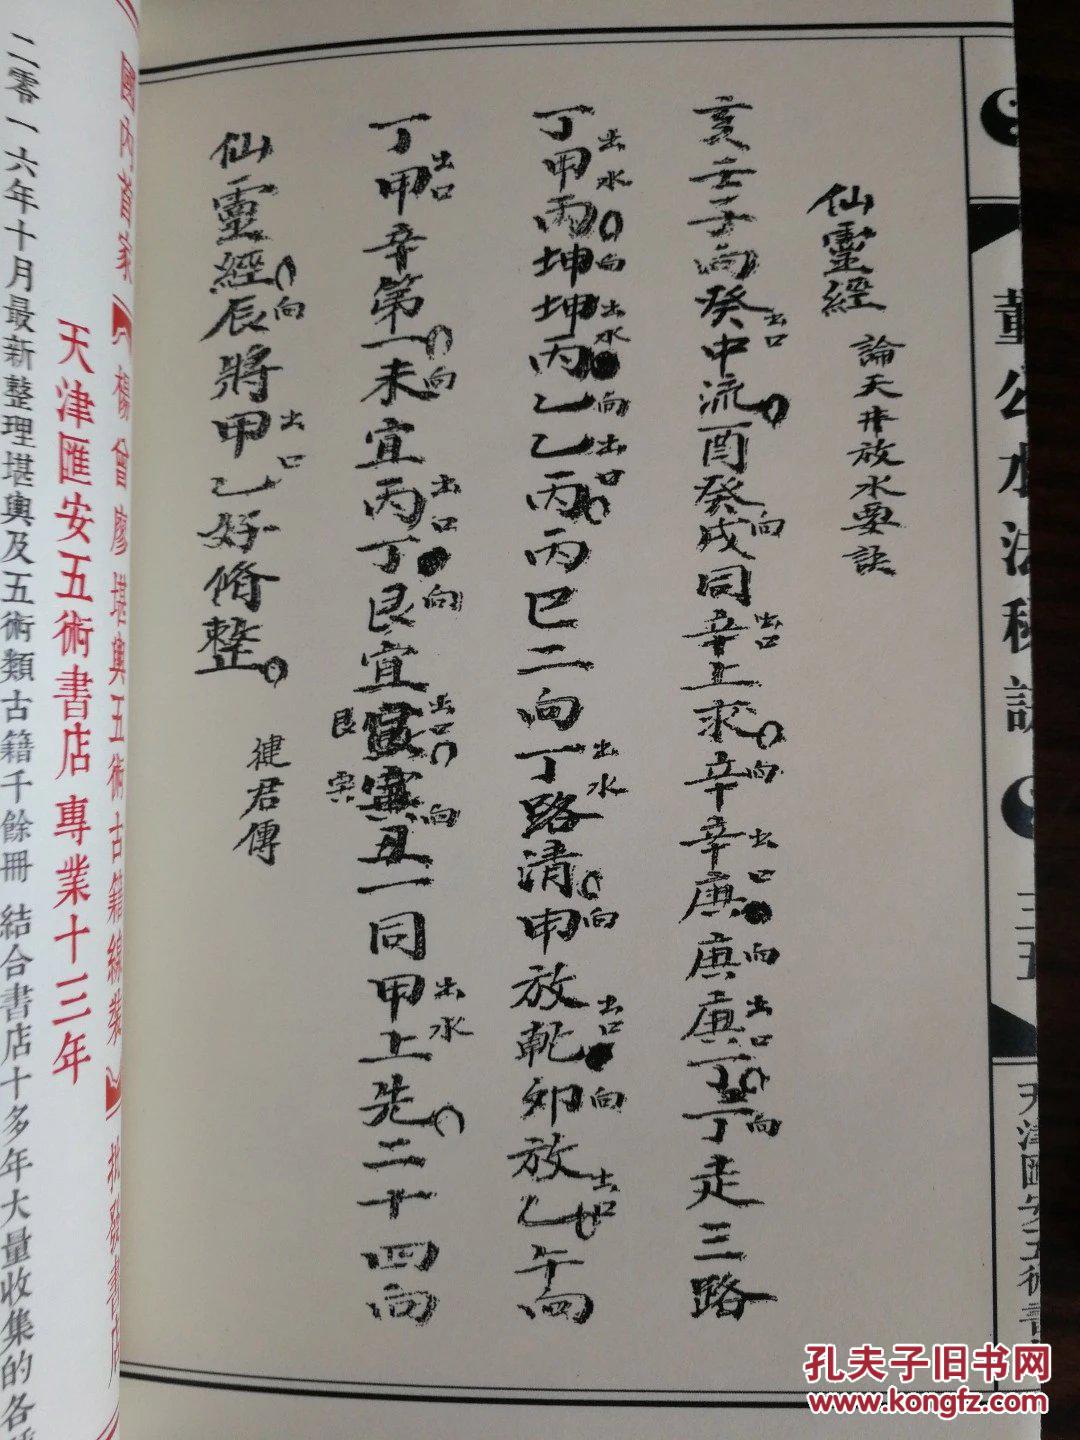 董公水法秘訣
三五
仙靈經 論天井放水要訣
亥壬子向癸中流酉癸戌同辛上求辛辛庚庚庚丁丁走三路
出口 向 出口 向 出口 向 出口 向
丁甲丙坤坤丙乙乙丙丙巳二向丁路清申放乾卯放乙午向
出水 向 出水 向 出口 出水 向 出口 向 出口
丁甲辛第一未宜丙丁艮宜寅丑一同甲上先二十四向
出口 向 出口 向 出口 向 出水
艮
仙靈經辰將甲乙好脩整
向 出口
健君傳
國內首家【楊曾廖堪輿五術古籍線裝】批發書店
天津匯安五術書店 專業十三年
二零一六年十月最新整理堪輿及五術類古籍千餘冊 結合書店十多年大量收集的各
孔夫子旧书网
www.kongfz.com